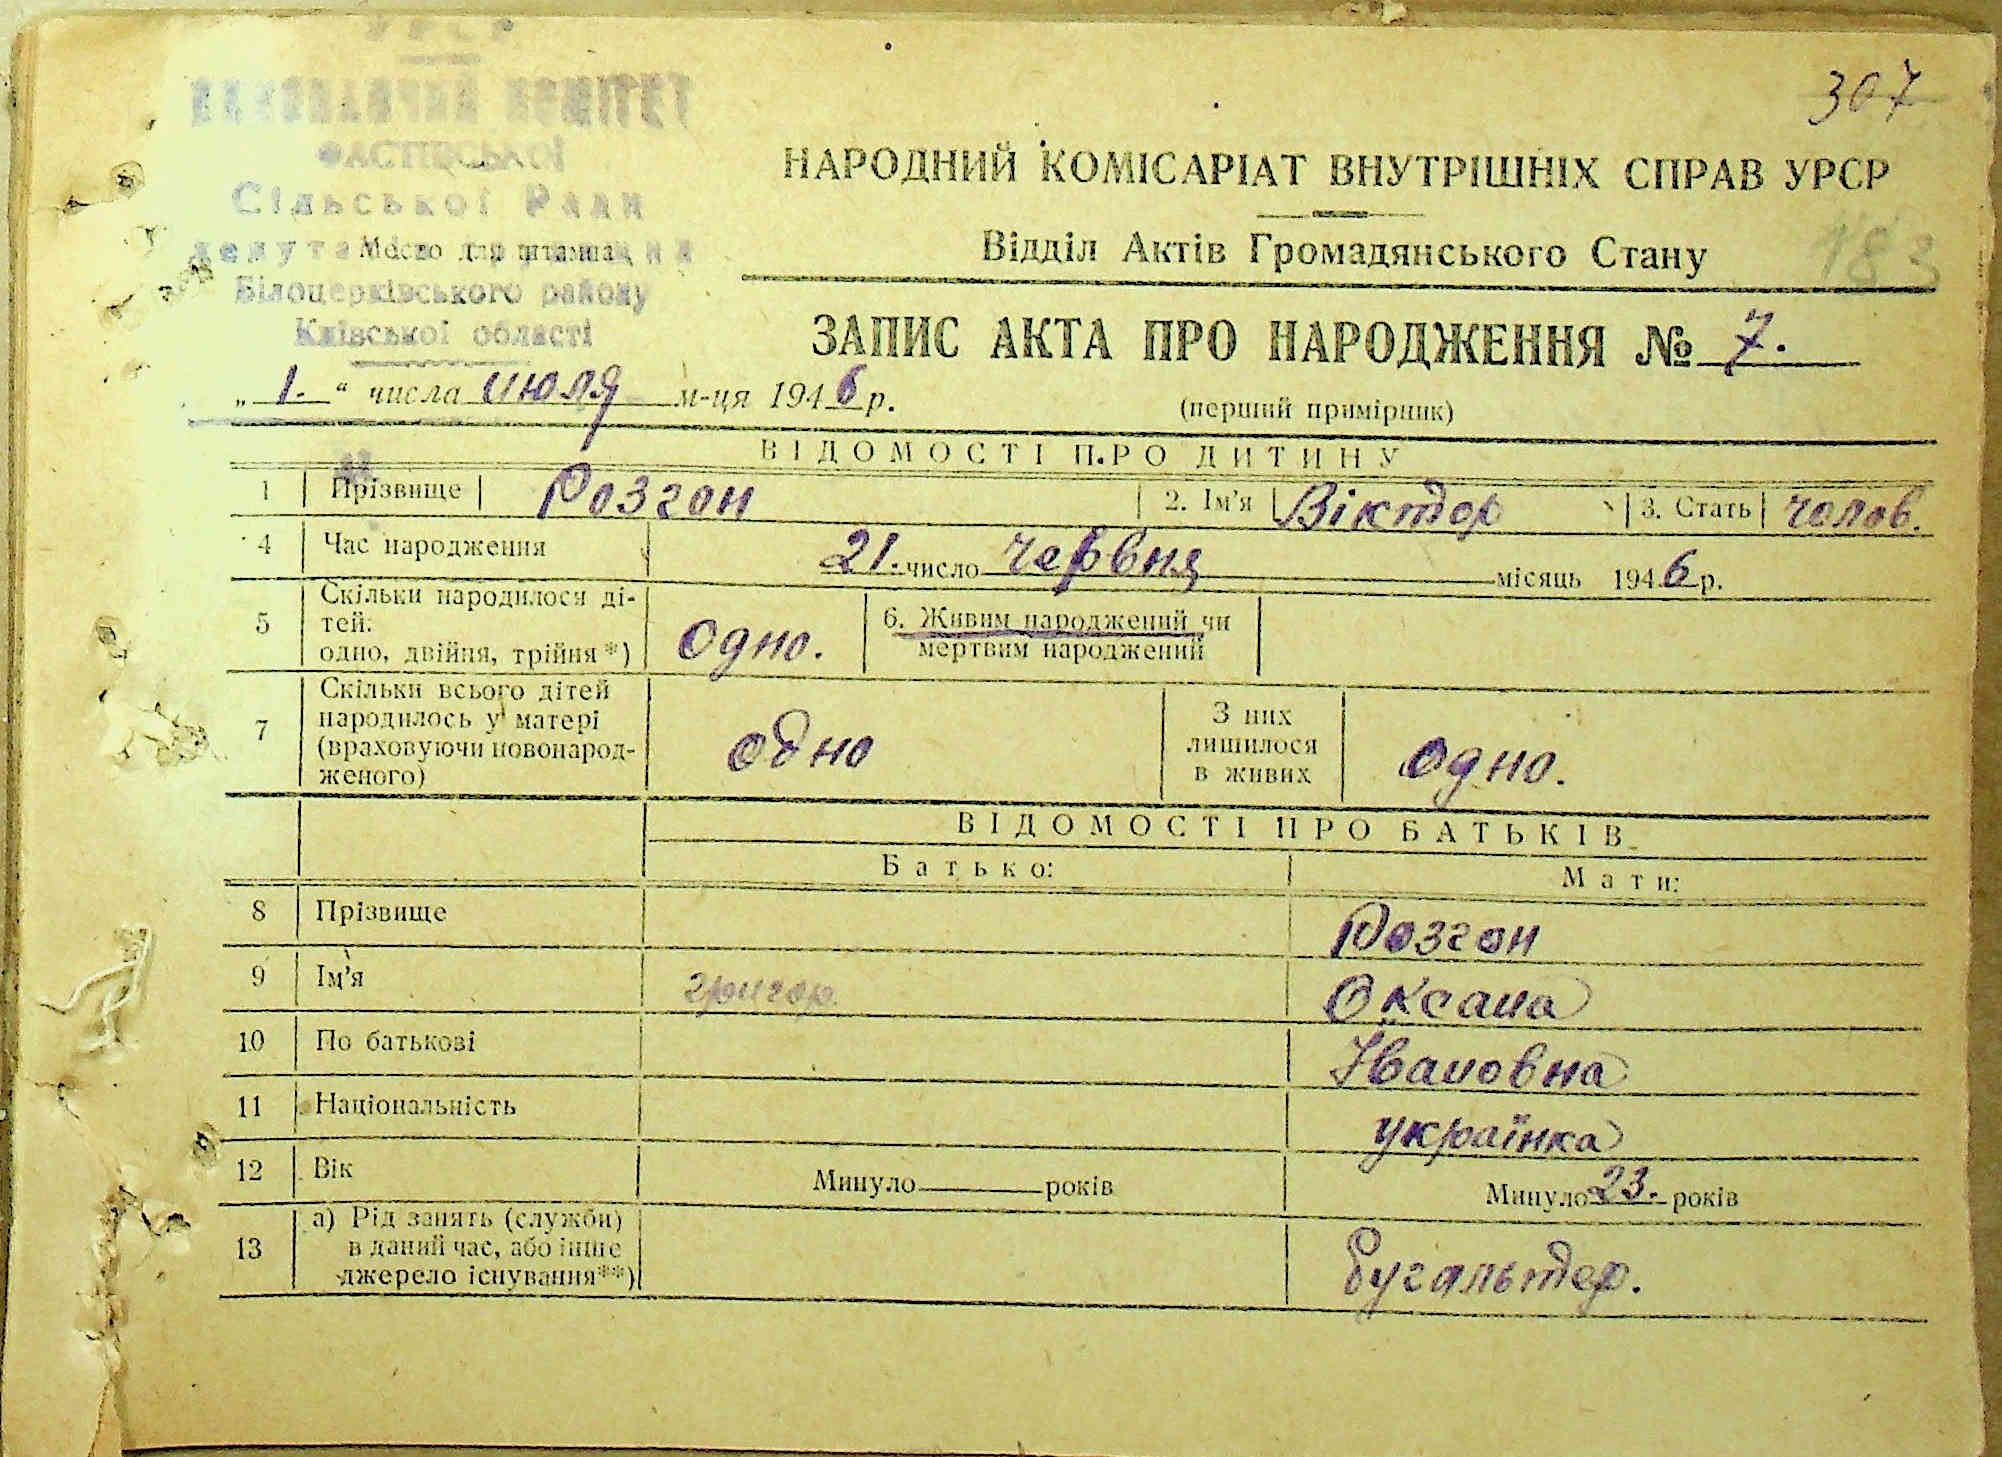 УРСР
ВИКОНАВЧИЙ КОМІТЕТ
ФАСТІВСЬКОЇ
Сільської Ради
депутатів трудящих
Місце для штампа
Білоцерківського району
Київської області
307
НАРОДНИЙ КОМІСАРІАТ ВНУТРІШНІХ СПРАВ УРСР
Відділ Актів Громадянського Стану
183
ЗАПИС АКТА ПРО НАРОДЖЕННЯ № 7.
„1.“ числа июля м-ця 1946 р.
(перший примірник)
ВІДОМОСТІ ПРО ДИТИНУ
1 Прізвище Розгон 2. Ім'я Віктор 3. Стать чолов.
4 Час народження 21. число червня місяць 1946 р.
5 Скільки народилося ді-
тей:
одно, двійня, трійня*) Одно. 6. Живим народжений чи
мертвим народжений
7 Скільки всього дітей
народилось у матері
(враховуючи новонарод-
женого) одно З них
лишилося
в живих одно.
ВІДОМОСТІ ПРО БАТЬКІВ
Батько: Мати:
8 Прізвище Розгон
9 Ім'я григор. Оксана
10 По батькові Івановна
11 Національність українка
12 Вік Минуло років Минуло 23. років
13 а) Рід занять (служби)
в даний час, або інше
джерело існування**) бугальтер.